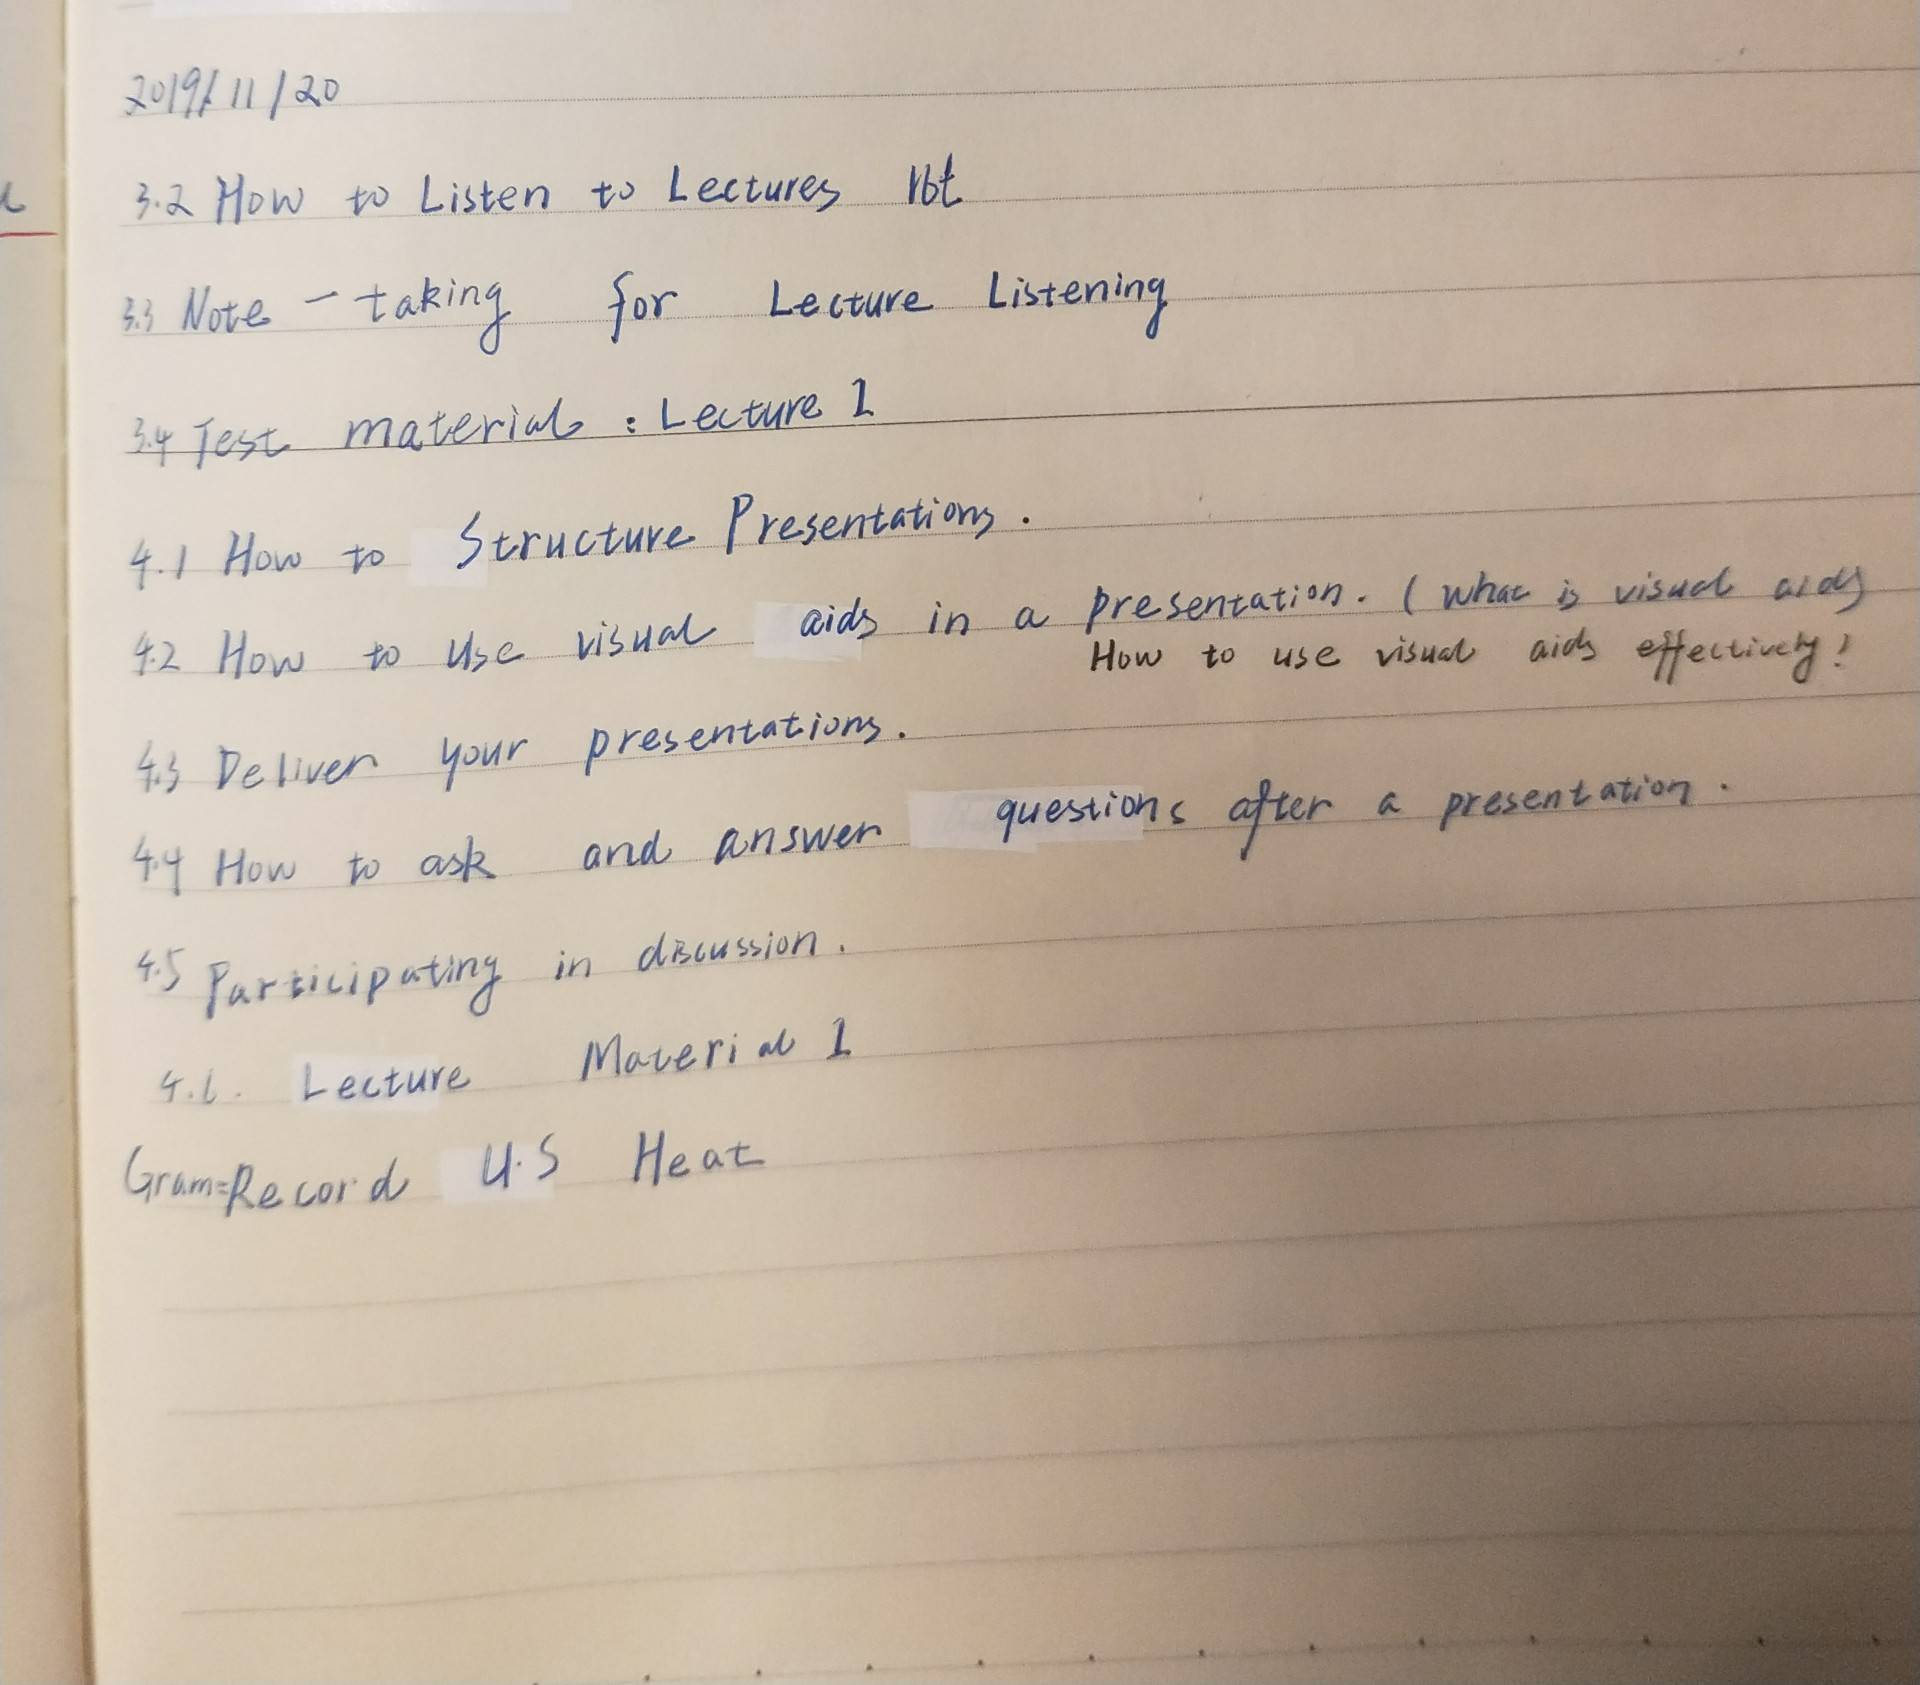 2019/11/20
3.2 How to Listen to Lectures
3.3 Note-taking for Lecture Listening
3.4 Test material: Lecture 1
4.1 How to Structure Presentations.
4.2 How to use visual aids in a presentation. (What is visual aids
How to use visual aids effectively?
4.3 Deliver your presentations.
4.4 How to ask and answer questions after a presentation.
4.5 Participating in discussion.
4.6. Lecture Material 1
Gram=Record U.S Heat